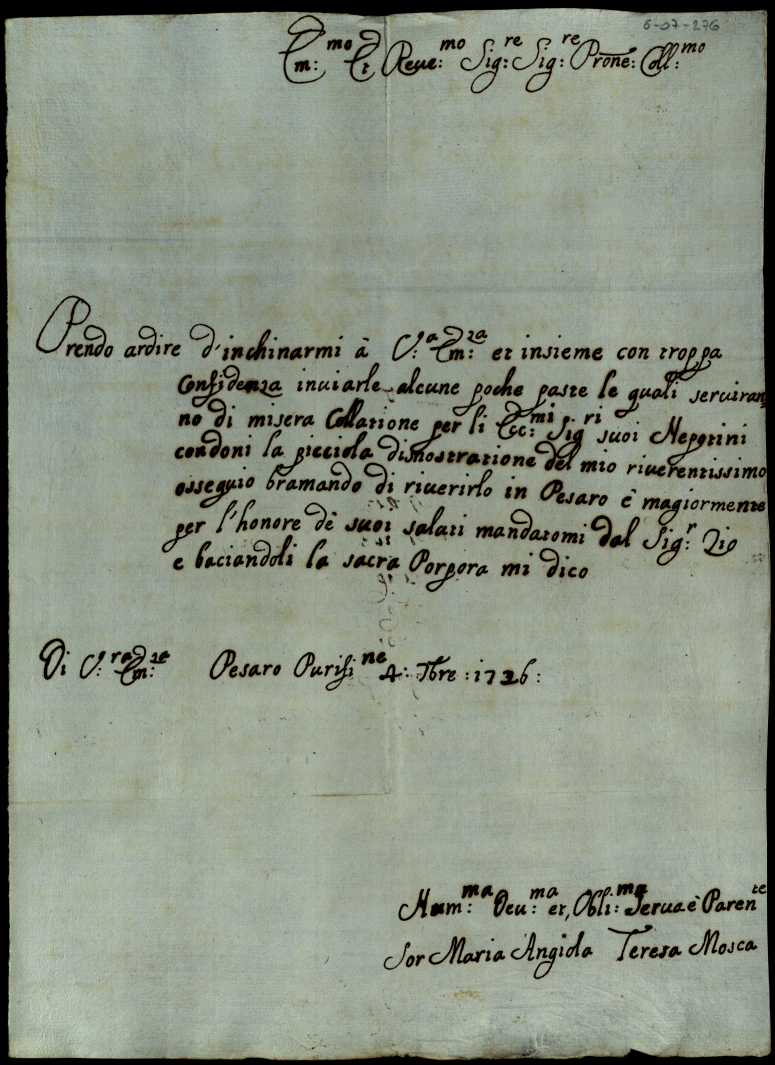 6-07-276
Em:mo et Reue:mo Sig:re Sig:re Prone: Coll:mo
Prendo ardire d'inchinarmi à V:a Em:za et insieme con troppa
Confidenza inuiarle alcune poche paste le quali seruiran,
no di misera Collatione per li Ecc:mi Sigri suoi Nepotini
condoni la picciola dimostratione del mio riuerentissimo
osseguio bramando di riuerirlo in Pesaro è magiormente
per l'honore dè suoi saluti mandatomi dal Sig:r Zio
e baciandoli la sacra Porpora mi dico
Di V:ra Em:za Pesaro Purifine 4: 7bre: 1726:
Hum:ma Deu:ma et, Obli:ma Serua è Parente
Sor Maria Angiola Teresa Mosca